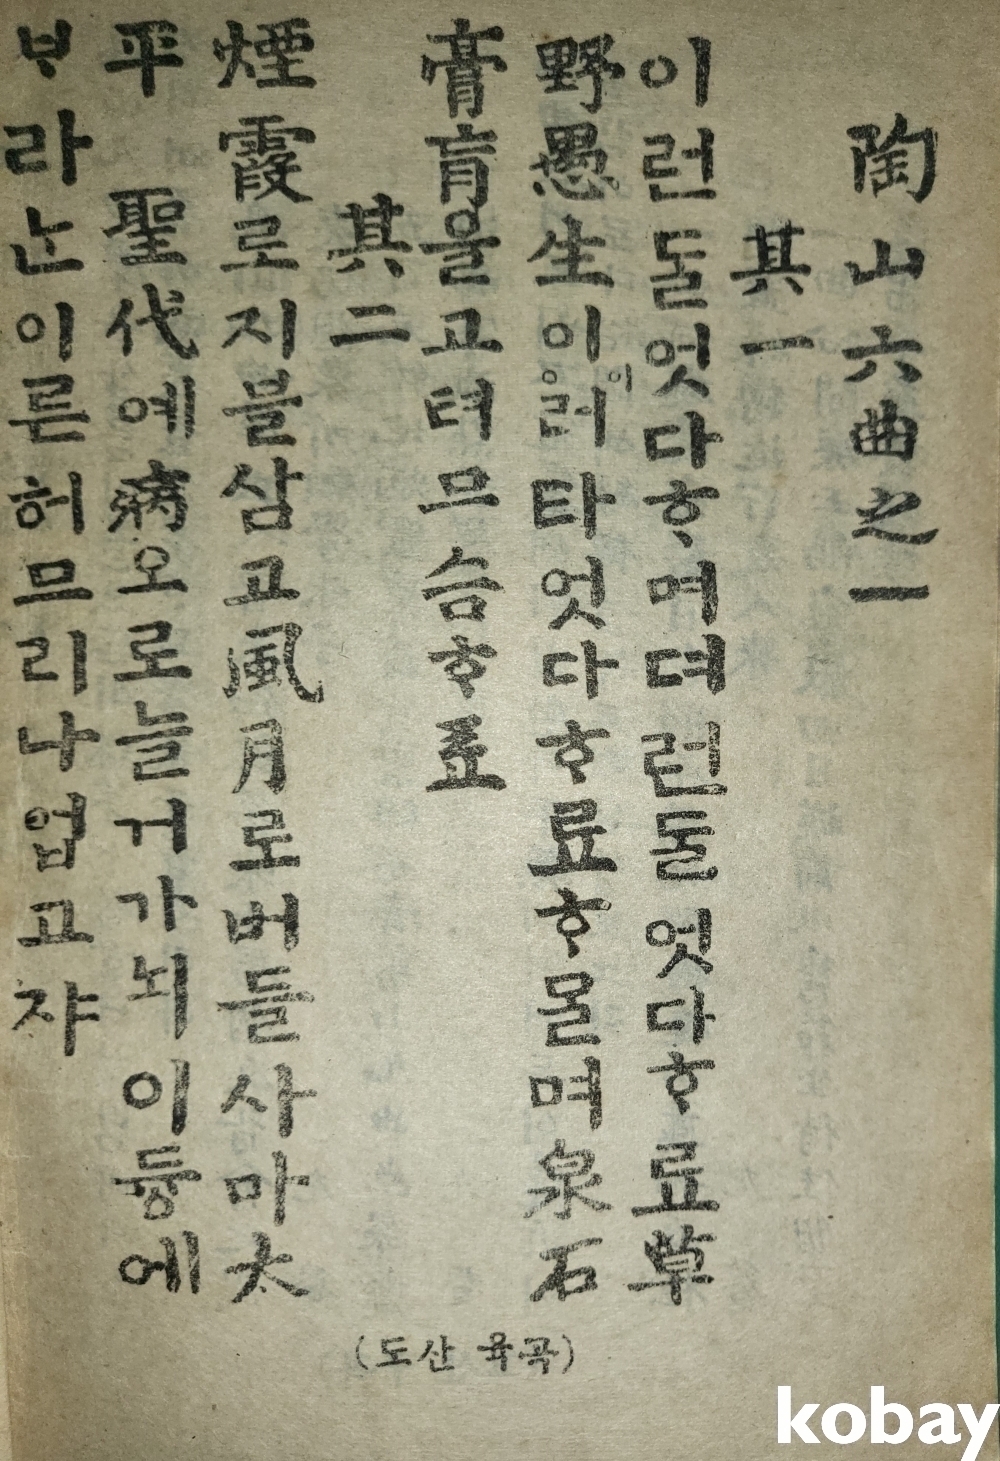 陶山六曲之一
其一
이런ᄃᆞᆯ엇다ᄒᆞ며뎌런ᄃᆞᆯ엇다ᄒᆞ료草
野愚生이이러타엇다ᄒᆞ료ᄒᆞᄆᆞᆯ며泉石
膏肓을고텨므슴ᄒᆞ료
其二
煙霞로지블삼고風月로버들사마太
平聖代예病오로늘거가뇌이듕에
ᄇᆞ라ᄂᆞᆫ이른허므리나업고쟈
(도산 육곡)
kobay